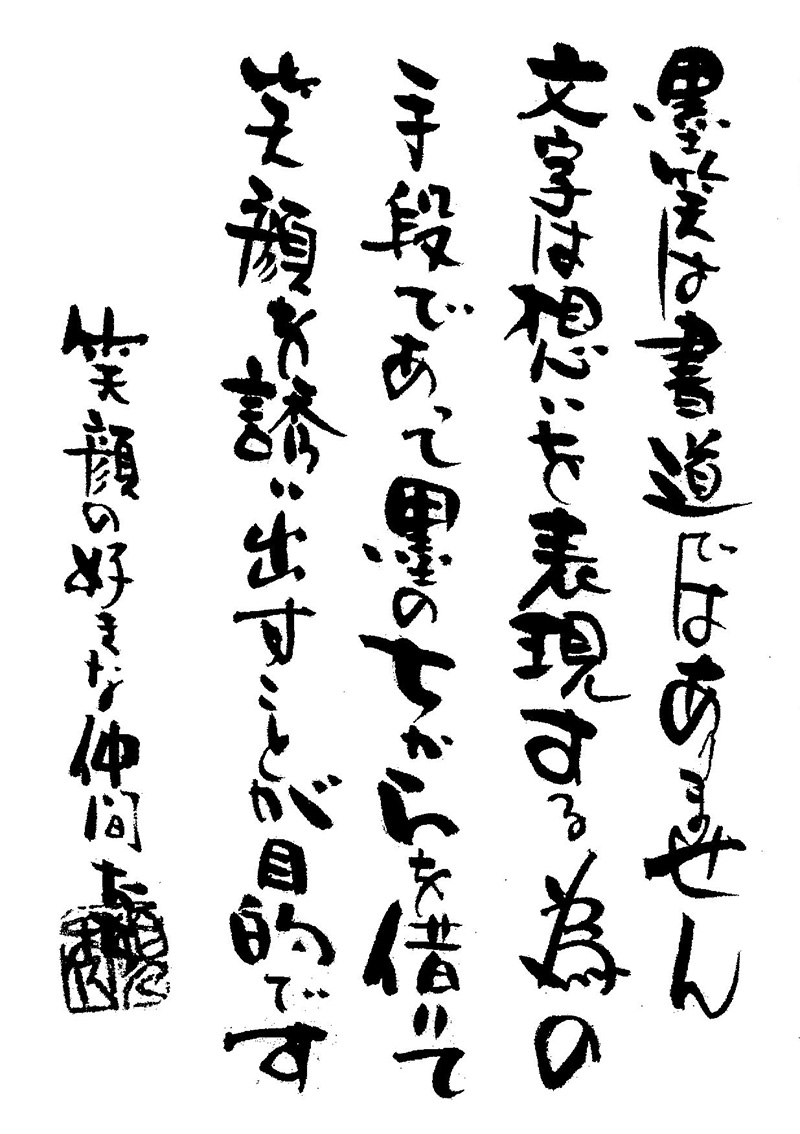 墨笑は書道ではありません
文字は想いを表現する為の
手段であって墨のちからを借りて
笑顔を誘い出すことが目的です
笑顔の好きな仲間